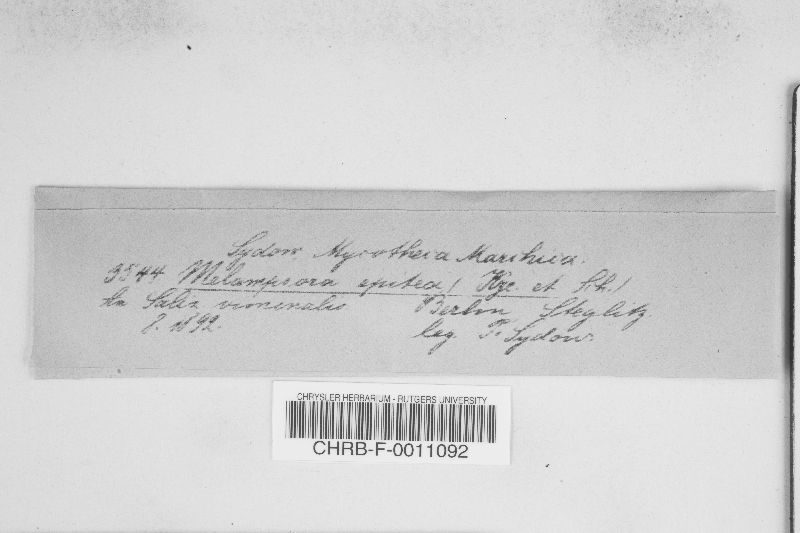 Sydow. Mycotheca Marchica.
3544 Melampsora epitea (Kze. et Sch.)
An Salix viminalis Berlin, Steglitz.
7. 1892. leg. P. Sydow.
CHRYSLER HERBARIUM - RUTGERS UNIVERSITY
CHRB-F-0011092